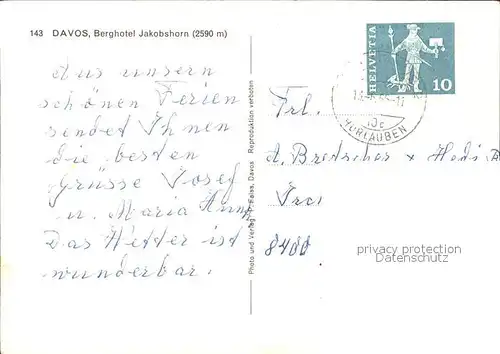 143 DAVOS, Berghotel Jakobshorn (2590 m)
Aus unsern
schönen Ferien
sendet Ihnen
die besten
Grüsse Josef
u. Maria
Das Wetter ist
wunderbar.
Photo und Verlag Reproduktion verboten
HELVETIA
10
ZURLAUBEN
Frl.
A. Bretscher + Hedi
8400
privacy protection
Datenschutz